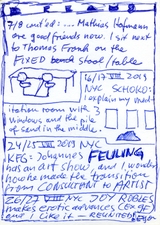 DREAMS
7/8 und id: ... Mathias Hofmann
are good friends now. I sit next
to Thomas Frank on the
FIXED bench stool/table
16/17 VIII 2019
NYC SCHOKO:
I explain my
itation room with 3
windows and the pile
of sand in the middle.
24/25 VIII 2019 NYC
KFG: Johannes FEULING
has an art show, and I wonder
how he made the transition
from CONSULTENT to ARTIST
26/27 VIII NYC JOY
makes erotic advances (ex gf)
and I like it — REUNITED